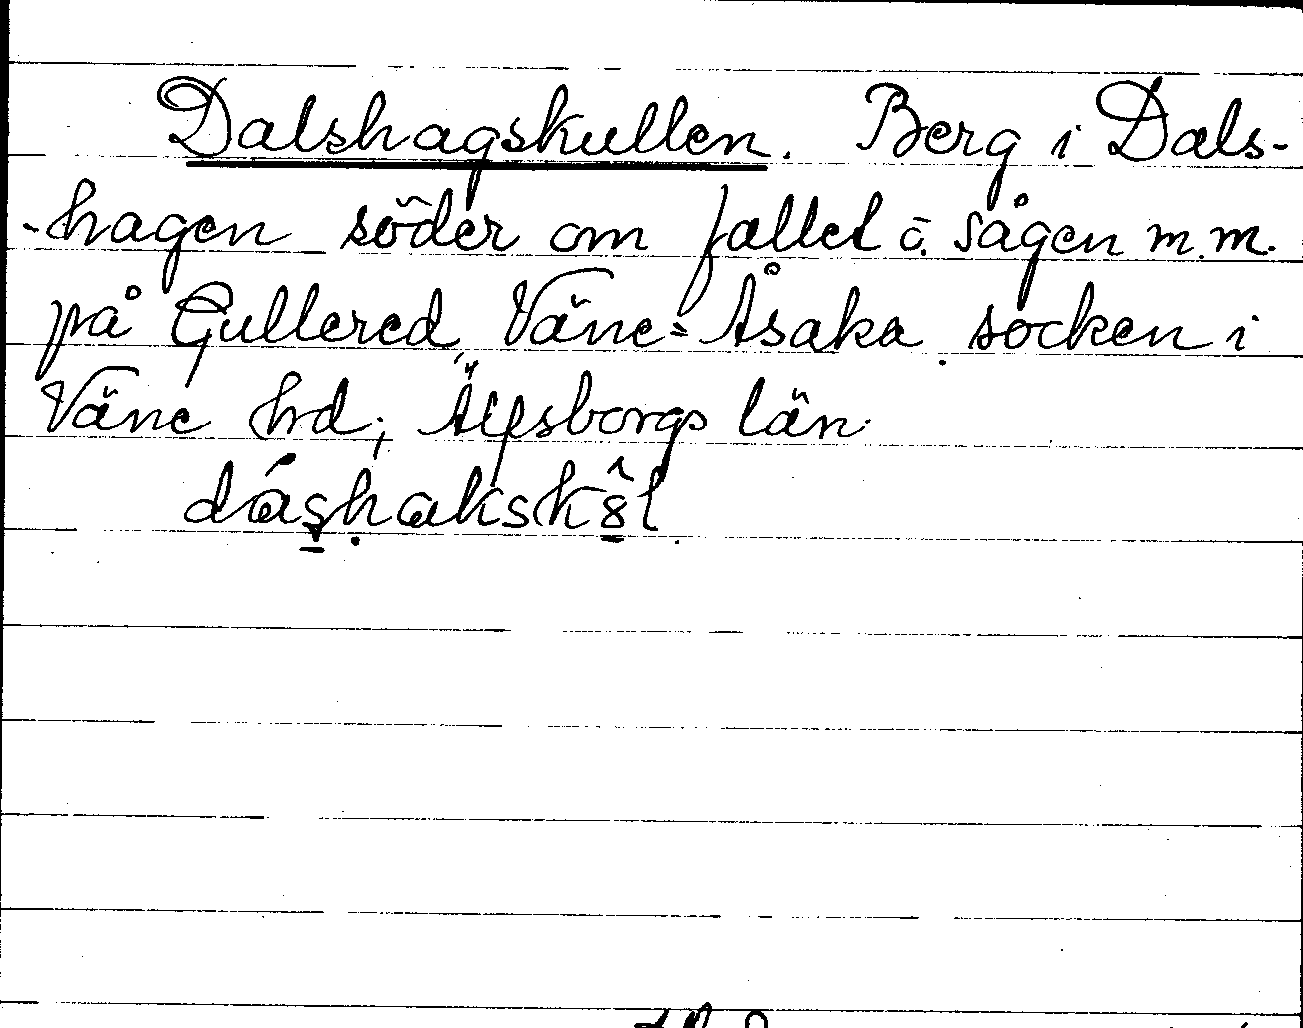 Dalshagskullen. Berg i Dals-
-hagen söder om fallet o. sågen m.m.
på Gullered, Väne=Åsaka socken i
Väne hrd; Älfsborgs län.